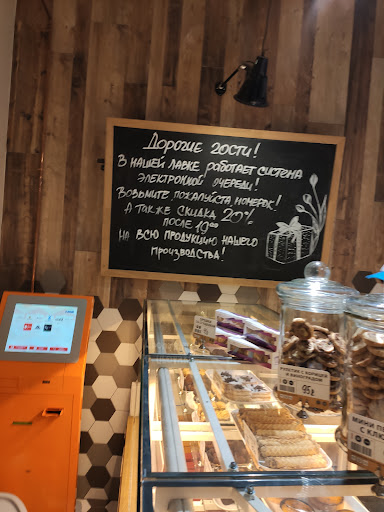 Дорогие гости!
В нашей лавке работает система
электронной очереди!
Возьмите пожалуйста номерок!
А также скидка 20%
после 19⁰⁰
на всю продукцию нашего
производства!
РУЛЕТИК С КОРИЦЕЙ
И ВИНОГРАДОМ
95₽
МИНИ
С К